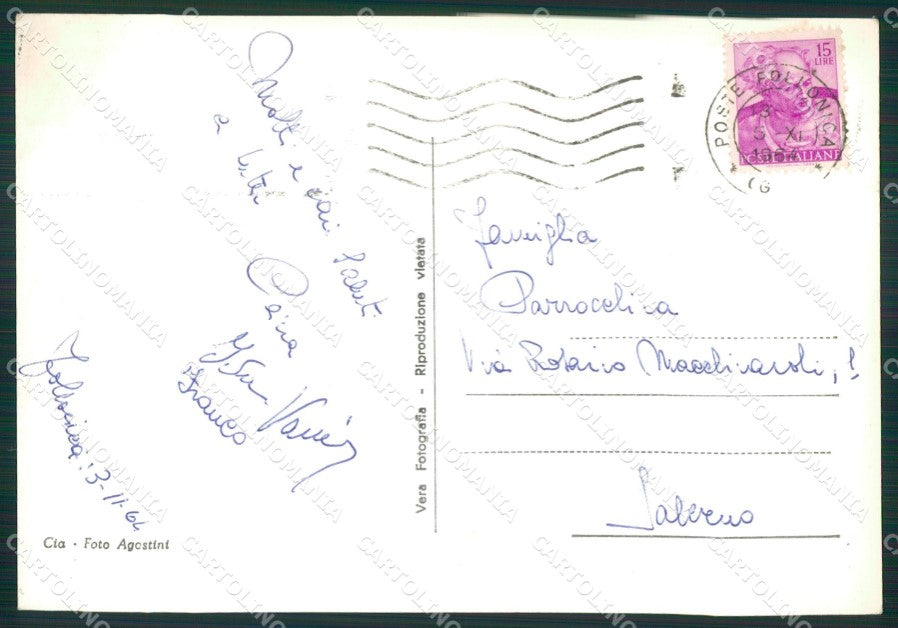 Molti e cari saluti
a tutti
Franco
Follonica 13-11-64
Cia - Foto Agostini
Vera Fotografia - Riproduzione vietata
15
LIRE
POSTE ITALIANE
POSTE FOLLONICA
XI
1964
(G
Famiglia
Parrocelica
Via Rosario Macchiaroli, 1,
Salerno
CARTOLINOMANIA